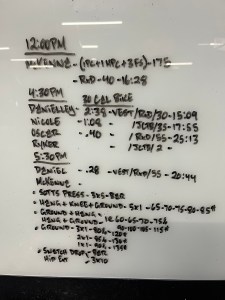 12:00PM
McKENNE - (1PC+1HPC+3FS) - 175
- RxD - 40 - 16:28
4:30PM 30 CAL BIKE
DANIELLE - 2:38 - VEST/RxD/30 - 15:09
NICOLE - 1:08 - /JCTB/35 - 17:55
OSCAR - .40 - /RxD/55 - 25:13
RYKER - /JCTB/2 -
5:30PM
DANIEL - .28 - VEST/RxD/55 - 20:44
McKENNE -
• SOTTS PRESS - 3x5 - BAR
• HANG + KNEE + GROUND - 5x1 - 65-70-75-80-85#
• GROUND + HANG +
HANG + GROUND - 60-65-70-75#
• GROUND - 3x1 - 80%
2x1 - 85%
1x1 - 90%
• SNATCH DROP - BAR
HIP EXT - 3x10